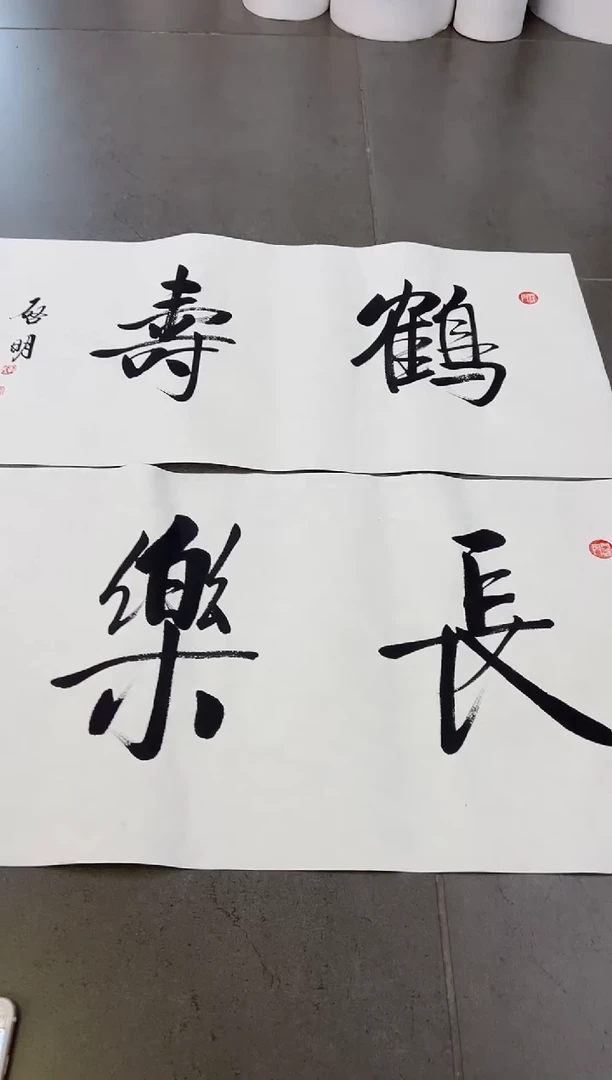 鶴壽
啓明
長樂